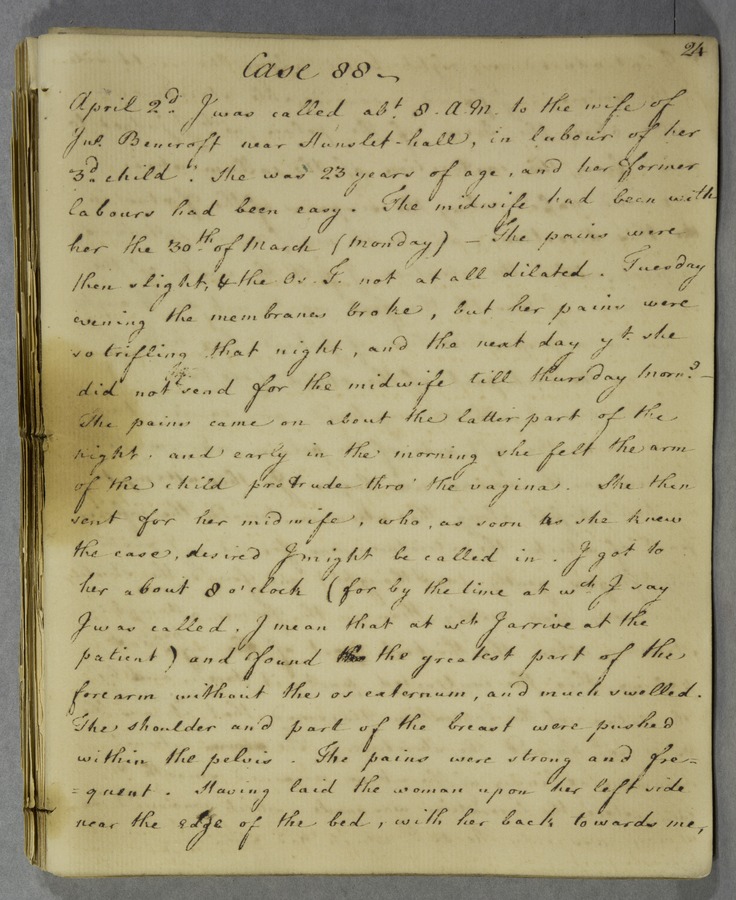 24
Case 88 -
April 2d. I was called abt. 8. A.M. to the wife of
Jno. Bencroft near Hunslet-hall, in labour of her
3d. child. She was 23 years of age, and her former
labours had been easy. The midwife had been with
her the 30th. of March (Monday) - The pains were
then slight, & the Os. T. not at all dilated. Tuesday
evening the membranes broke, but her pains were
so trifling that night, and the next day yt. she
did not send for the midwife till thursday morng. -
The pains came on about the latter part of the
night. and early in the morning she felt the arm
of the child protrude thro' the vagina. She then
sent for her midwife, who, as soon as she knew
the case, desired I might be called in. I got to
her about 8 o'clock (for by the time at wch I say
I was called. I mean that at wch I arrive at the
patient) and found the greatest part of the
fore arm without the os externum, and much swelled.
The shoulder and part of the breast were pushed
within the pelvis. The pains were strong and fre=
=quent. Having laid the woman upon her left side
near the edge of the bed, with her back towards me,